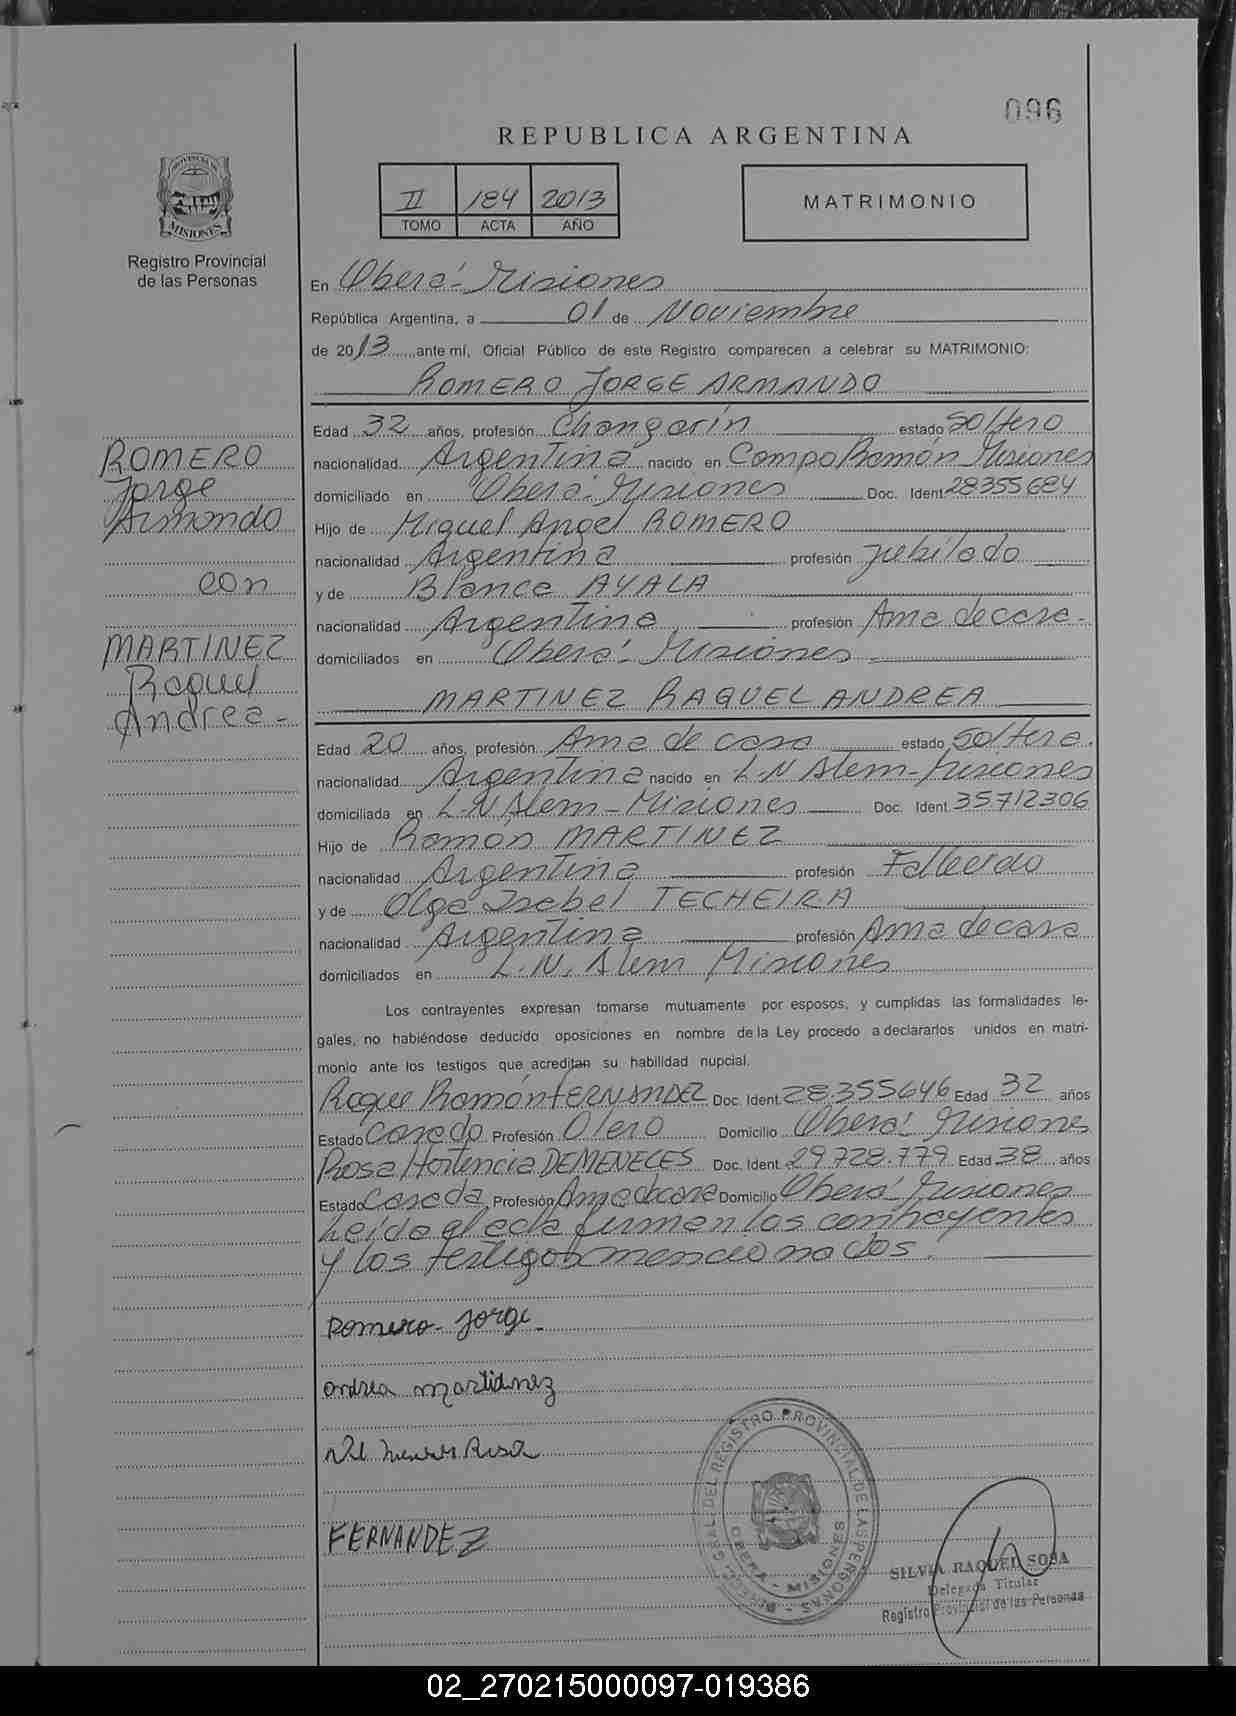 096
REPUBLICA ARGENTINA
II 184 2013
TOMO ACTA AÑO
MATRIMONIO
PROVINCIA DE
MISIONES
Registro Provincial
de las Personas
En Oberá - Misiones
República Argentina, a 01 de Noviembre
de 2013 ante mí, Oficial Público de este Registro comparecen a celebrar su MATRIMONIO:
ROMERO JORGE ARMANDO
Edad 32 años, profesión Changarín estado Soltero
nacionalidad Argentina nacido en Campo Ramón Misiones
domiciliado en Oberá - Misiones Doc. Ident 28355684
Hijo de Miguel Angel ROMERO
nacionalidad Argentina profesión Jubilado
y de Blanca AYALA
nacionalidad Argentina profesión Ama de casa -
domiciliados en Oberá - Misiones
MARTINEZ RAQUEL ANDREA
Edad 20 años, profesión Ama de casa estado Soltera.
nacionalidad Argentina nacido en L.N Alem - Misiones
domiciliada en L.N Alem - Misiones Doc. Ident 35712306
Hijo de Ramón MARTINEZ
nacionalidad Argentina profesión Fallecido
y de Olga Isabel TECHEIRA
nacionalidad Argentina profesión Ama de casa
domiciliados en L.N. Alem Misiones
ROMERO
Jorge
Armando
con
MARTINEZ
Raquel
Andrea -
Los contrayentes expresan tomarse mutuamente por esposos, y cumplidas las formalidades le-
gales, no habiéndose deducido oposiciones en nombre de la Ley procedo a declararlos unidos en matri-
monio ante los testigos que acreditan su habilidad nupcial.
Roque Ramón FERNANDEZ Doc. Ident. 28.355646 Edad 32 años
Estado Casado Profesión Olero Domicilio Oberá - Misiones
Rosa Hortencia DEMENECES Doc. Ident. 29728.779 Edad 38 años
Estado Casada Profesión Ama de casa Domicilio Oberá - Misiones
Leído el acta firman los contrayentes
y los testigos mencionados.
Romero - Jorge -
andrea martidnez
Rosa
FERNANDEZ
GRAL DEL REGISTRO PROVINCIAL DE LAS PERSONAS
OBERA - MISIONES
SILVIA RAQUEL SOSA
Delegada Titular
Registro Provincial de las Personas
02_270215000097-019386